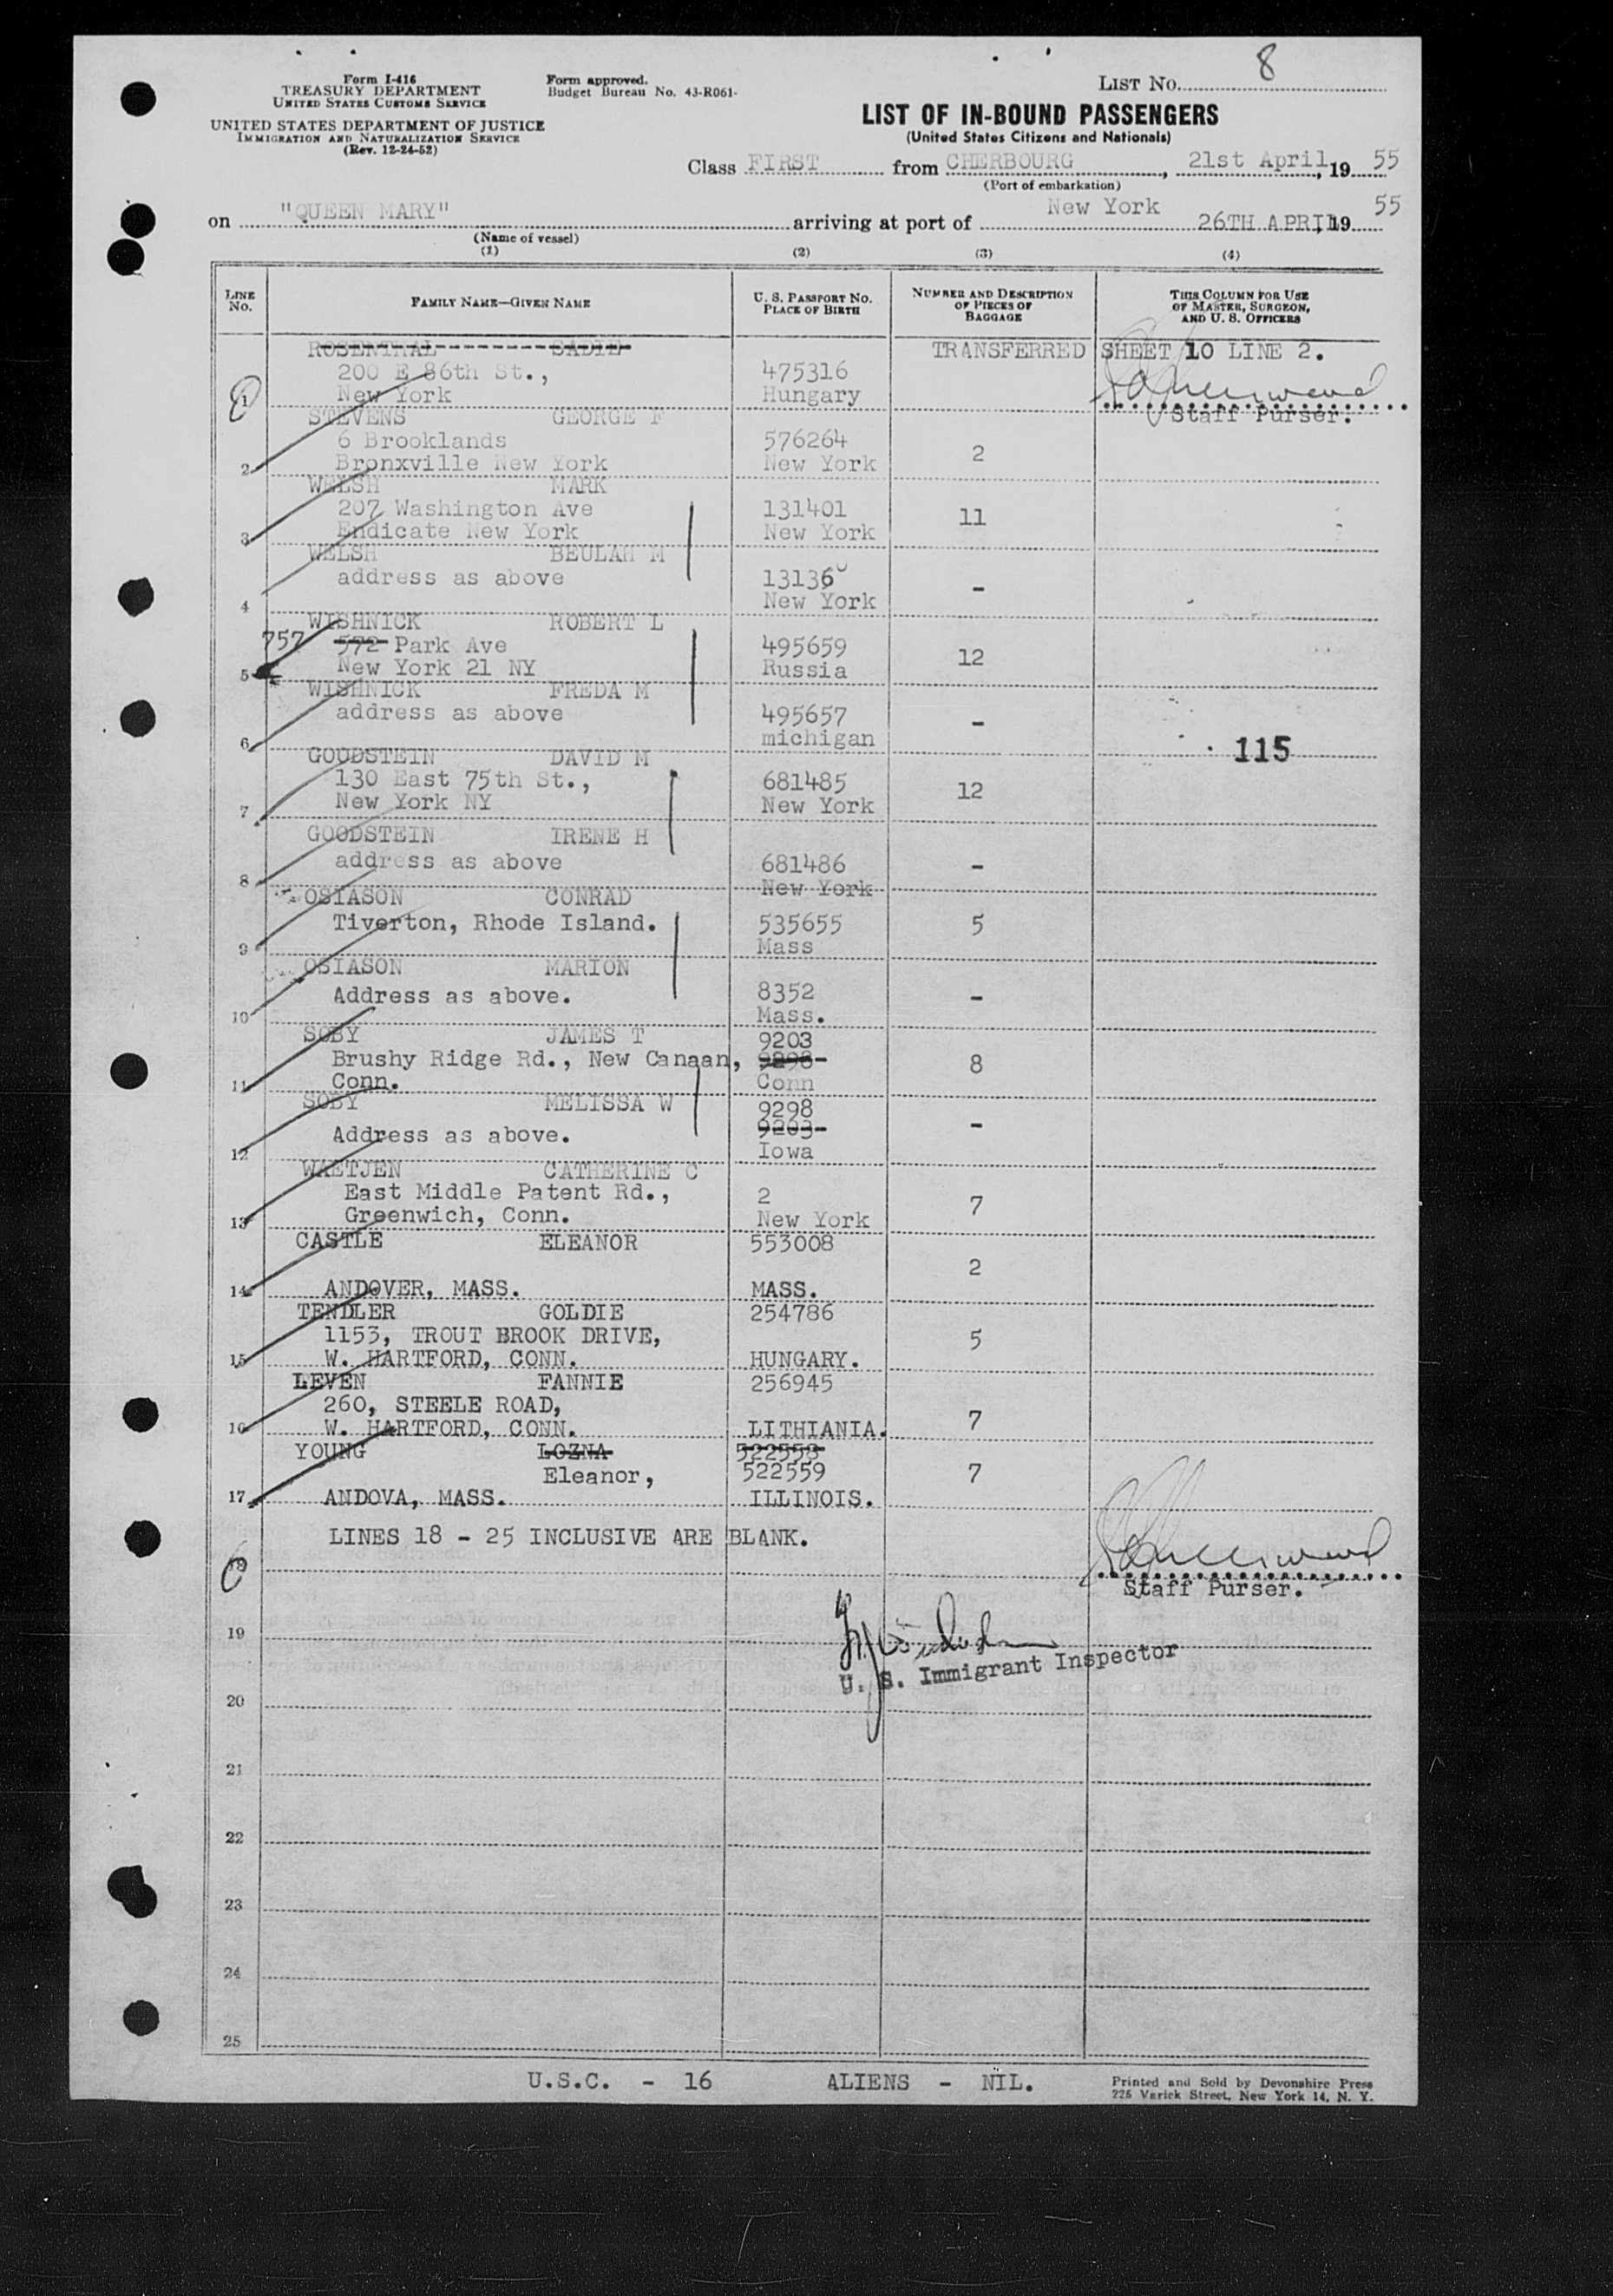 Form I-416
TREASURY DEPARTMENT
UNITED STATES CUSTOMS SERVICE
UNITED STATES DEPARTMENT OF JUSTICE
IMMIGRATION AND NATURALIZATION SERVICE
(Rev. 12-24-52)
Form approved.
Budget Bureau No. 43-R061-
LIST No. 8
LIST OF IN-BOUND PASSENGERS
(United States Citizens and Nationals)
Class FIRST from CHERBOURG, 21st April, 19 55
(Port of embarkation)
on "QUEEN MARY" arriving at port of New York 26TH APRIL 19 55
(Name of vessel)
(1) (2) (3) (4)
LINE No. FAMILY NAME—GIVEN NAME U. S. PASSPORT No. PLACE OF BIRTH NUMBER AND DESCRIPTION OF PIECES OF BAGGAGE THIS COLUMN FOR USE OF MASTER, SURGEON, AND U. S. OFFICERS
ROSENTHAL SADIE TRANSFERRED SHEET 10 LINE 2.
200 E 86th St., 475316
1 New York Hungary
Staff Purser.
STEVENS GEORGE F
6 Brooklands 576264
2 Bronxville New York New York 2
WELSH MARK
207 Washington Ave 131401 11
3 Endicate New York New York
WELSH BEULAH M
address as above 13136
4 New York -
WISHNICK ROBERT L
757 572 Park Ave 495659 12
5 New York 21 NY Russia
WISHNICK FREDA M
address as above 495657 -
6 michigan
115
GOODSTEIN DAVID M
130 East 75th St., 681485 12
7 New York NY New York
GOODSTEIN IRENE H
address as above 681486 -
8 New York
OSIASON CONRAD
Tiverton, Rhode Island. 535655 5
9 Mass
OSIASON MARION
Address as above. 8352 -
10 Mass.
SOBY JAMES T 9203
Brushy Ridge Rd., New Canaan, 9298 8
11 Conn. Conn
SOBY MELISSA W 9298
9203 -
Address as above.
12 Iowa
WAETJEN CATHERINE C
East Middle Patent Rd., 2 7
13 Greenwich, Conn. New York
CASTLE ELEANOR 553008
2
14 ANDOVER, MASS. MASS.
TENDLER GOLDIE 254786
1153, TROUT BROOK DRIVE, 5
15 W. HARTFORD, CONN. HUNGARY.
LEVEN FANNIE 256945
260, STEELE ROAD, 7
16 W. HARTFORD, CONN. LITHIANIA.
YOUNG LOZNA 522558
Eleanor, 522559 7
17 ANDOVA, MASS. ILLINOIS.
LINES 18 - 25 INCLUSIVE ARE BLANK.
18
Staff Purser.
19
U. S. Immigrant Inspector
20
21
22
23
24
25
U.S.C. - 16 ALIENS - NIL.
Printed and Sold by Devonshire Press
225 Varick Street, New York 14, N. Y.